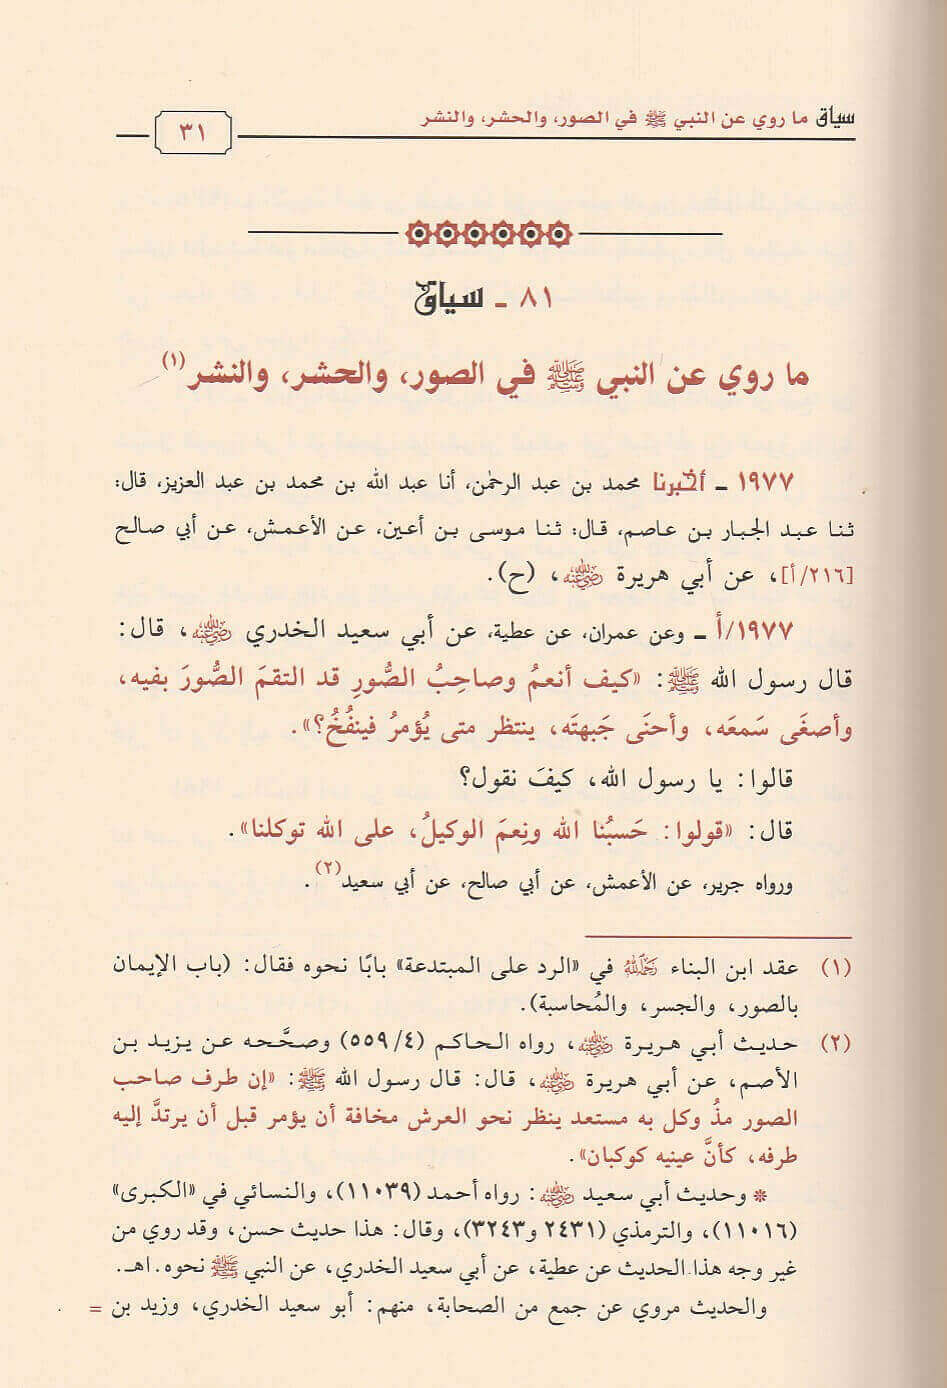 سياق ما روي عن النبي ﷺ في الصور، والحشر، والنشر
٣١
٨١ ـ سياق
ما روي عن النبي ﷺ في الصور، والحشر، والنشر(١)
١٩٧٧ ـ أخبرنا محمد بن عبد الرحمٰن، أنا عبد الله بن محمد بن عبد العزيز، قال:
ثنا عبد الجبار بن عاصم، قال: ثنا موسى بن أعين، عن الأعمش، عن أبي صالح
[٢١٦/أ]، عن أبي هريرة رضي الله عنه، (ح).
١٩٧٧/أ ـ وعن عمران، عن عطية، عن أبي سعيد الخدري رضي الله عنه، قال:
قال رسول الله ﷺ: «كيف أنعمُ وصاحِبُ الصُّورِ قد التقمَ الصُّورَ بفيه،
وأصغَى سَمعَه، وأحنَى جَبهتَه، ينتظر متى يُؤمرُ فينفُخُ؟».
قالوا: يا رسول الله، كيفَ نقول؟
قال: «قولوا: حَسبُنا الله ونِعمَ الوكيلُ، على الله توكلنا».
ورواه جرير، عن الأعمش، عن أبي صالح، عن أبي سعيد(٢).
(١) عقد ابن البناء رحمه الله في «الرد على المبتدعة» بابًا نحوه فقال: (باب الإيمان
بالصور، والجسر، والمُحاسبة).
(٢) حديث أبي هريرة رضي الله عنه، رواه الحاكم (٥٥٩/٤) وصحَّحه عن يزيد بن
الأصم، عن أبي هريرة رضي الله عنه، قال: قال رسول الله ﷺ: «إن طرف صاحب
الصور مذُ وكل به مستعد ينظر نحو العرش مخافة أن يؤمر قبل أن يرتدَّ إليه
طرفه، كأنَّ عينيه كوكبان».
* وحديث أبي سعيد رضي الله عنه: رواه أحمد (١١٠٣٩)، والنسائي في «الكبرى»
(١١٠١٦)، والترمذي (٢٤٣١ و٣٢٤٣)، وقال: هذا حديث حسن، وقد روي من
غير وجه هذا الحديث عن عطية، عن أبي سعيد الخدري، عن النبي ﷺ نحوه. اهـ.
والحديث مروي عن جمع من الصحابة، منهم: أبو سعيد الخدري، وزيد بن =